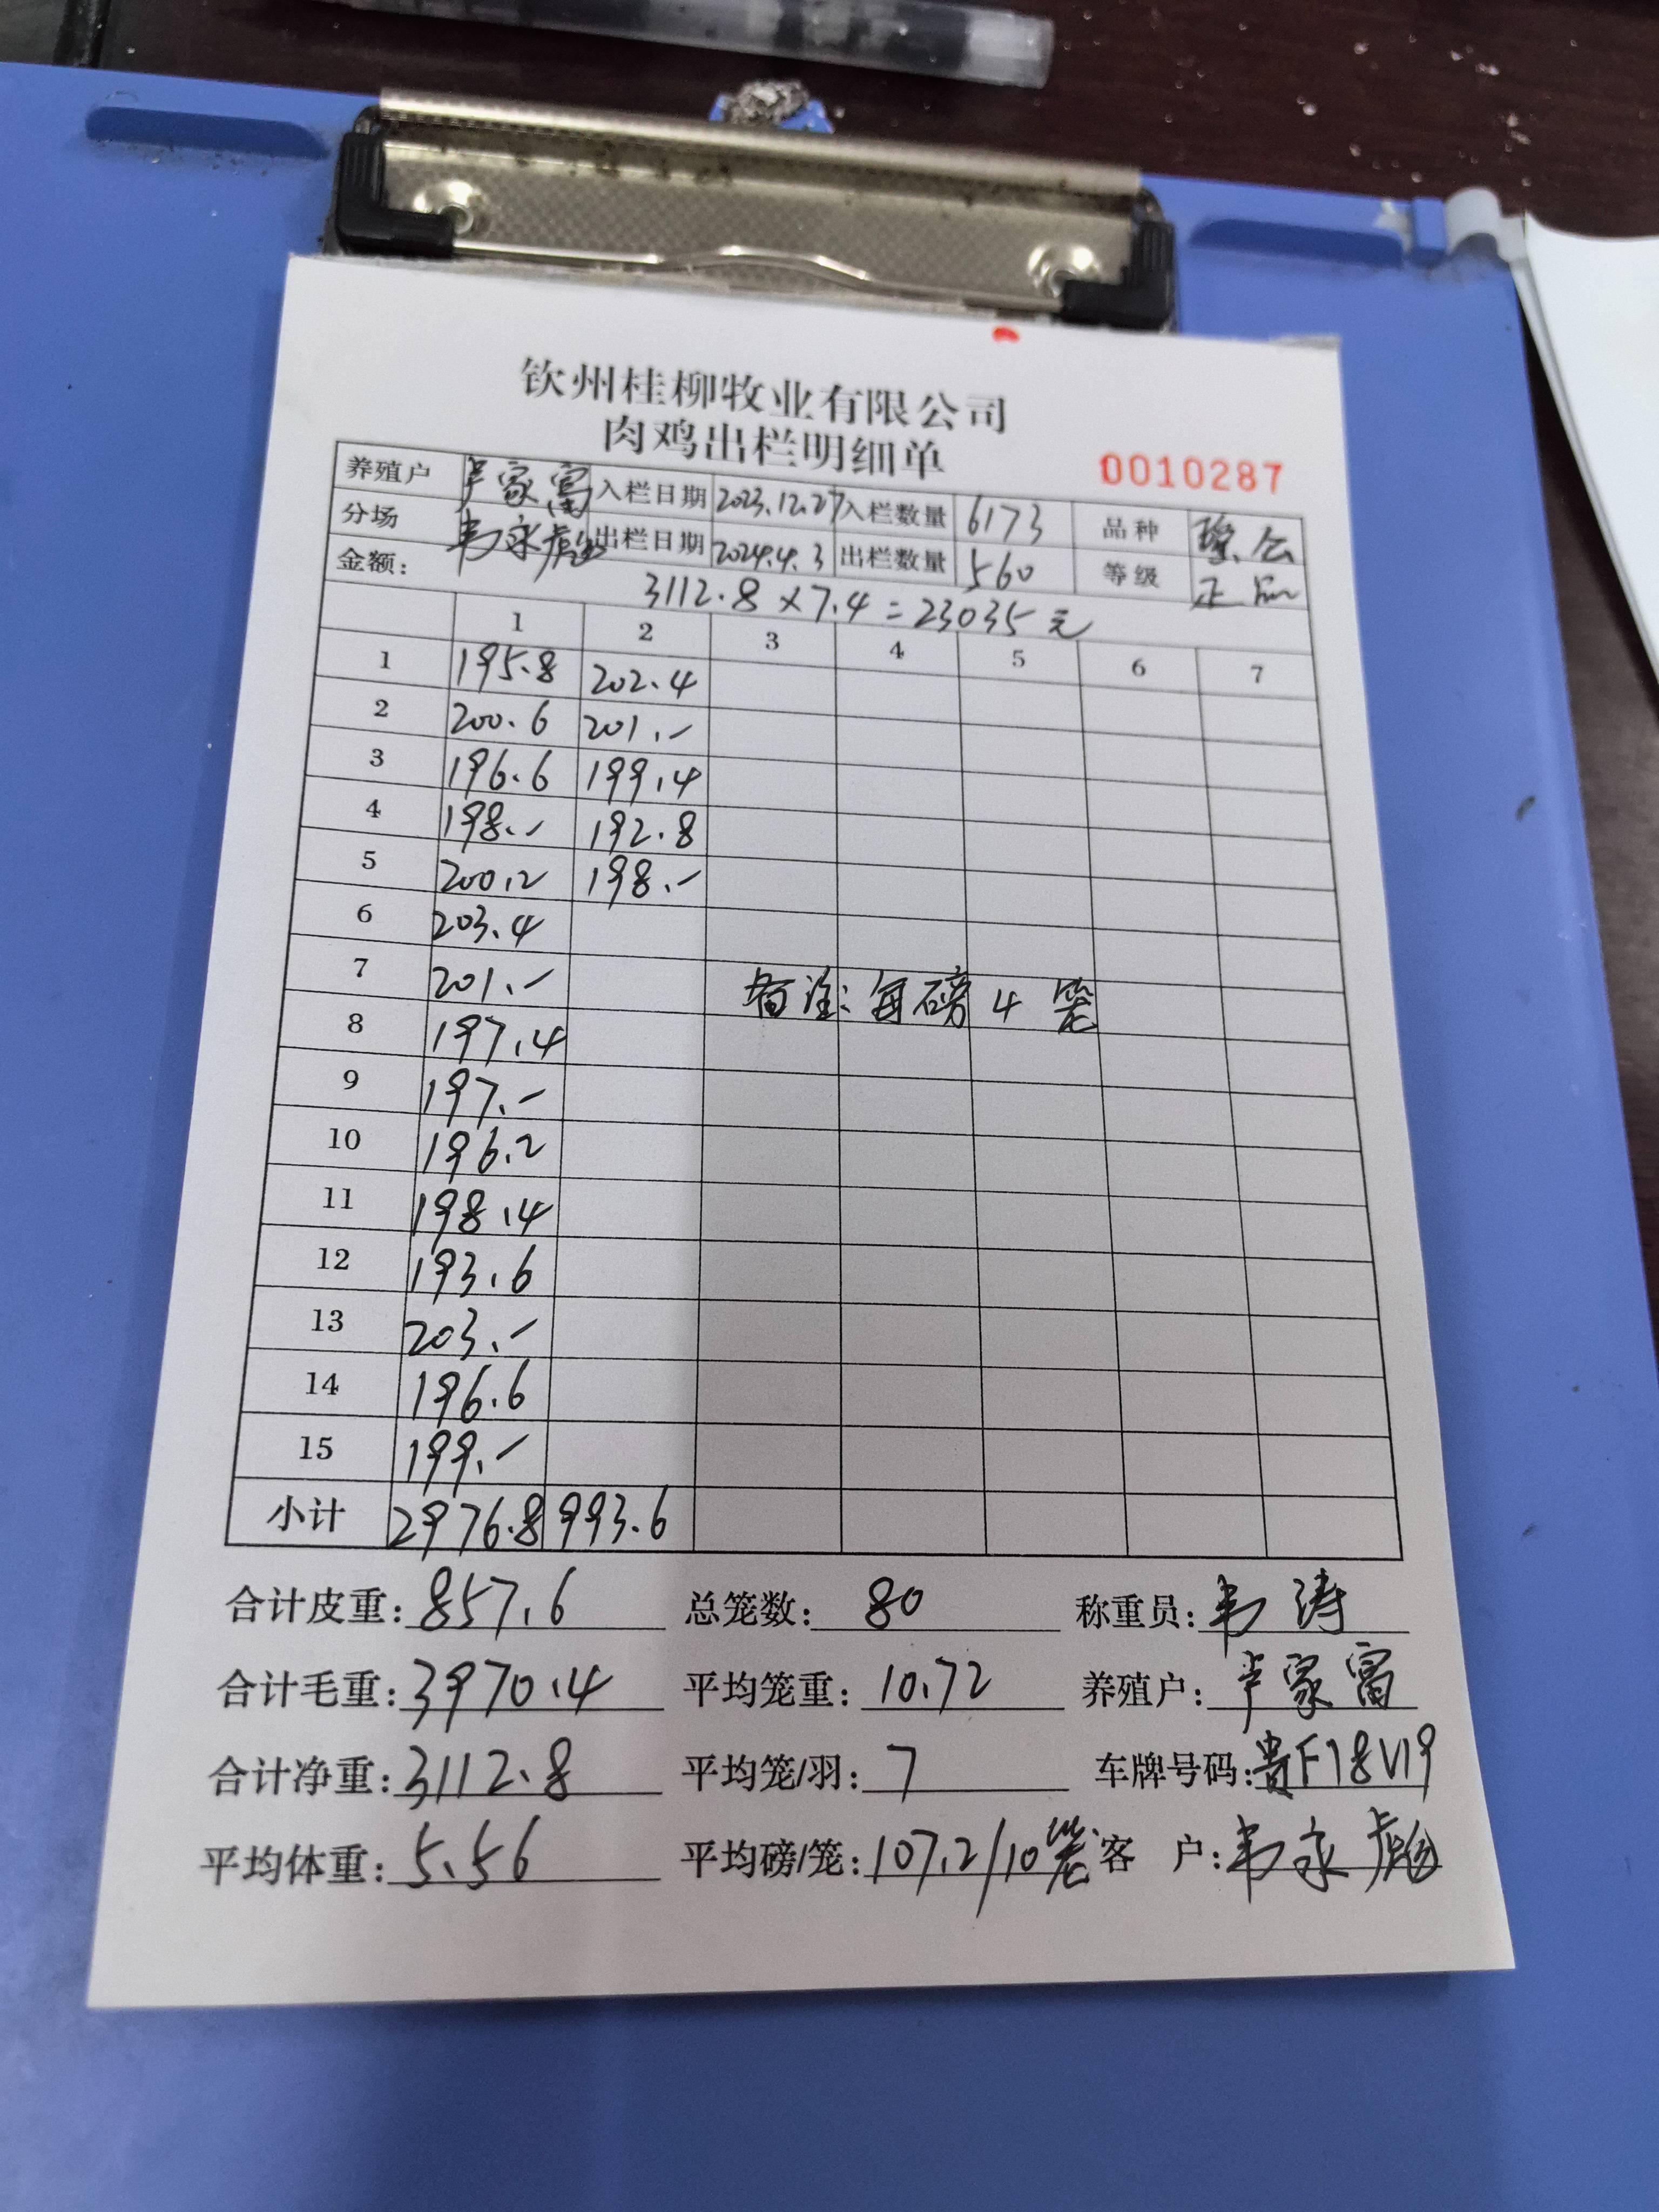 钦州桂柳牧业有限公司
肉鸡出栏明细单
0010287
养殖户 卢家富 入栏日期 2023.12.27 入栏数量 6173 品种
分场 韦永彪 出栏日期 2024.4.3 出栏数量 560 等级 正品
金额: 3112.8×7.4=23035元
1 2 3 4 5 6 7
1 195.8 202.4
2 200.6 201.-
3 196.6 199.4
4 198.- 192.8
5 200.2 198.-
6 203.4
7 201.- 备注:每磅4笼
8 197.4
9 197.-
10 196.2
11 198.4
12 193.6
13 203.-
14 196.6
15 199.-
小计 2976.8 993.6
合计皮重: 857.6 总笼数: 80 称重员: 韦涛
合计毛重: 3970.4 平均笼重: 10.72 养殖户: 卢家富
合计净重: 3112.8 平均笼/羽: 7 车牌号码: 贵F18V19
平均体重: 5.56 平均磅/笼: 107.2/10笼 客 户: 韦永彪